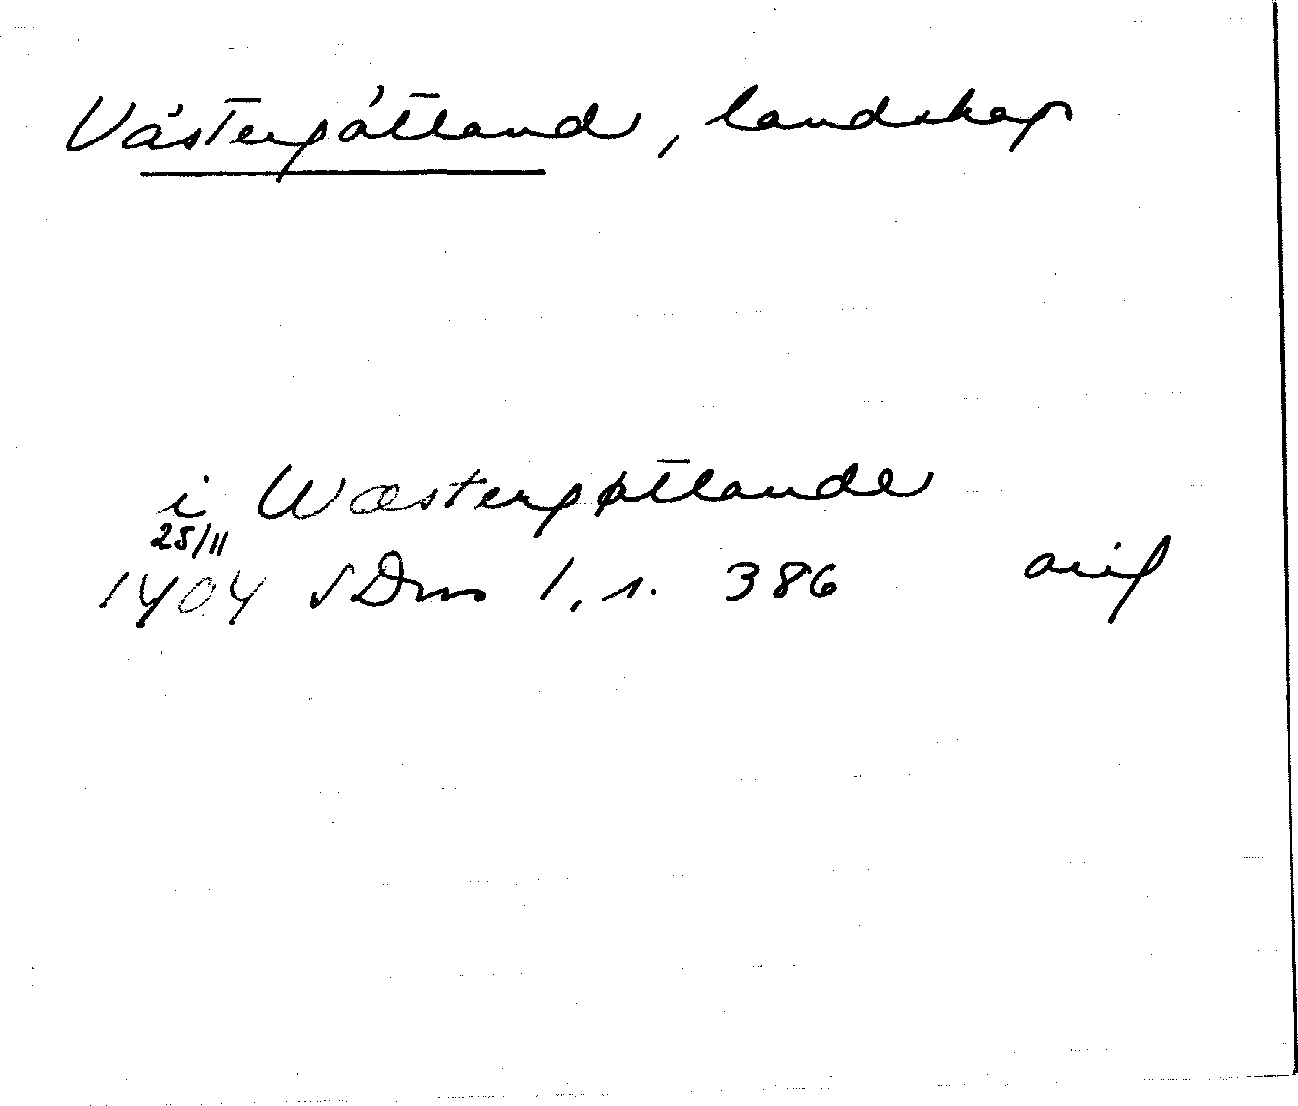 Västergötland, landskap
i Wæstergøtlande
25/11
1404 SDns 1, s. 386 avig